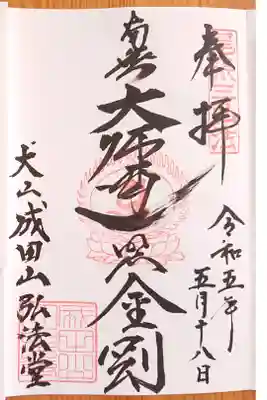 奉拝
令和五年
五月十八日
南無大師遍照金剛
犬山成田山弘法堂